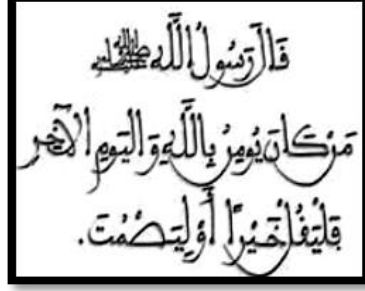 قَالَ رَسُولُ اللَّه ﷺ
مَن كَانَ يُومِنُ بِاللَّهِ وَ اليَومِ الآخِرِ
فَلْيَقُلْ خَيْرًا أَوْ لِيَصْمُتْ.